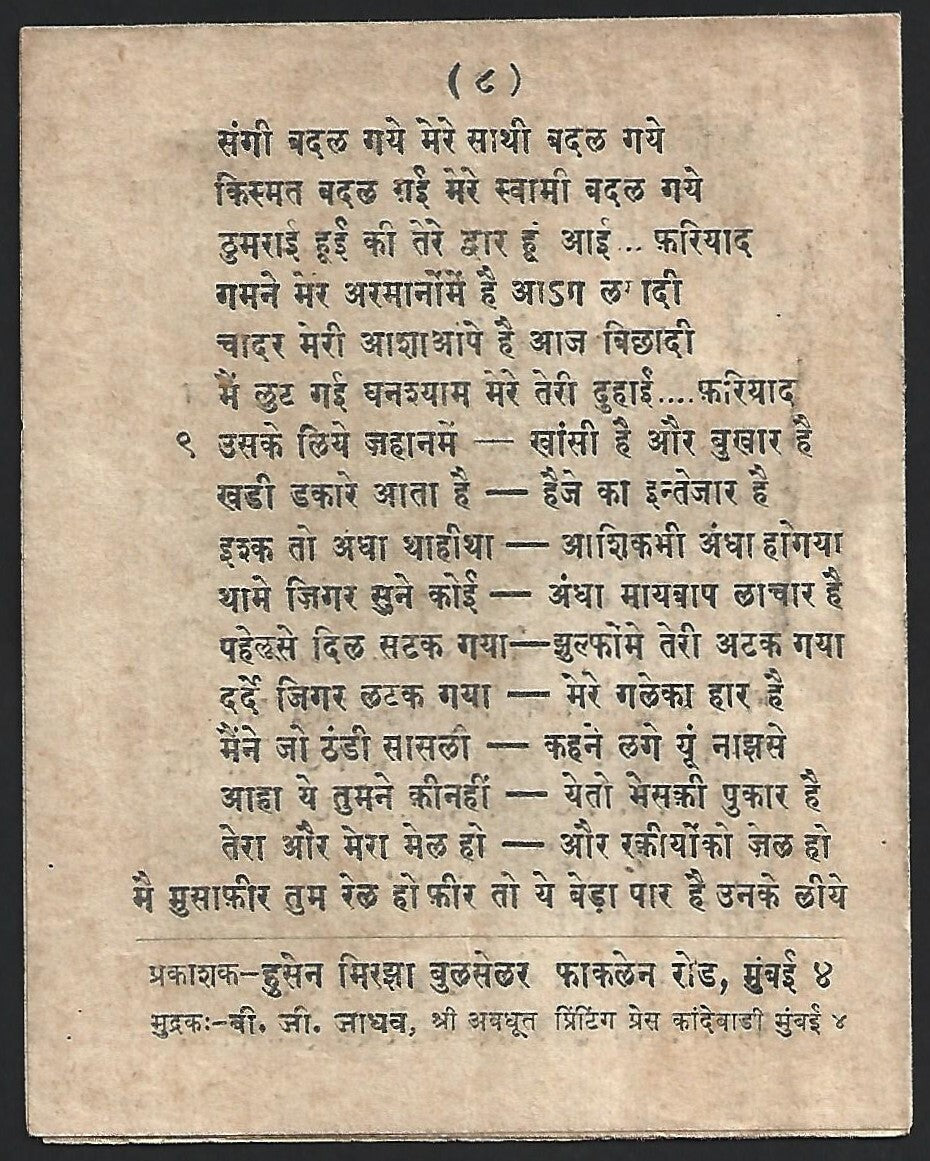 ( ८ )
संगी बदल गये मेरे साथी बदल गये
किस्मत बदल गई मेरे स्वामी बदल गये
ठुमराई हूई की तेरे द्वार हूं आई... फ़रियाद
गमने मेर अरमानोंमें है आऽग ल दी
चादर मेरी आशाआंपे है आज बिछादी
मैं लुट गई घनश्याम मेरे तेरी दुहाई....फ़रियाद
९ उसके लिये ज़हानमें — खांसी है और बुखार है
खडी डकारे आता है — हैजे का इन्तेजार है
इश्क तो अंधा थाहीथा — आशिकभी अंधा होगया
थामे ज़िगर सुने कोई — अंधा मायबाप लाचार है
पहेलूसे दिल सटक गया—झुल्फोंमे तेरी अटक गया
दर्दे जिगर लटक गया — मेरे गलेका हार है
मैंने जो ठंडी सासली — कहने लगे यूं नाझसे
आहा ये तुमने क़ीनहीं — येतो भेसक़ी पुकार है
तेरा और मेरा मेल हो — और रक़ीयोंको ज़ेल हो
मै मुसाफ़ीर तुम रेल हो फ़ीर तो ये बेड़ा पार है उनके लीये
प्रकाशक-हुसेन मिरझा बुलसेलर फाकलेन रोड, मुंबई ४
मुद्रकः-बी. जी. जाधव, श्री अवधूत प्रिंटिंग प्रेस कांदेवाडी मुंबई ४